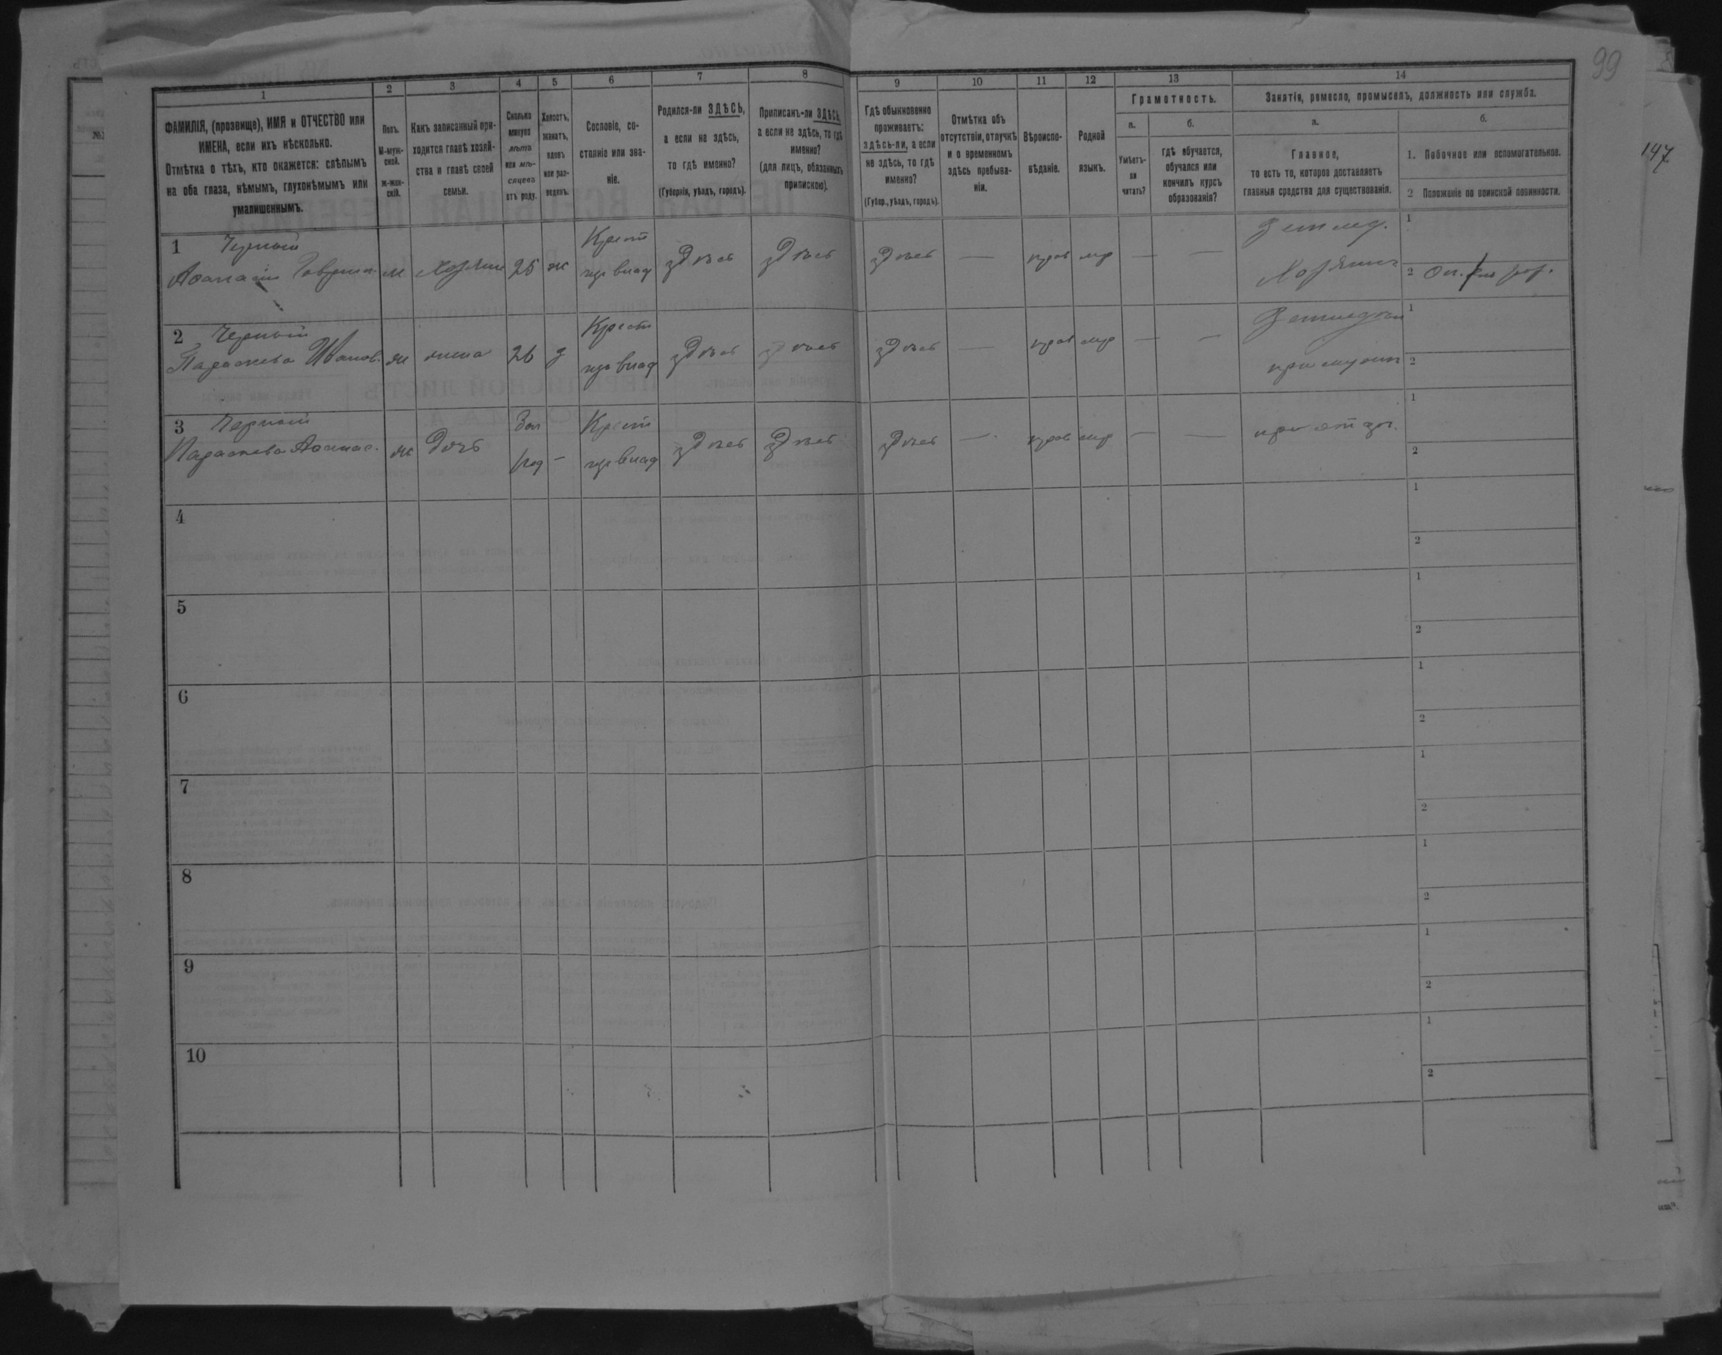 99
147
1
2
3
4
5
6
7
8
9
10
11
12
13
14
ФАМИЛІЯ, (прозвище), ИМЯ и ОТЧЕСТВО или
ИМЕНА, если ихъ нѣсколько.
Отмѣтка о тѣхъ, кто окажется: слѣпымъ
на оба глаза, нѣмымъ, глухонѣмымъ или
умалишеннымъ.
Полъ.
М-муж-
ской.
Ж-жен-
скій.
Какъ записанный при-
ходится главѣ хозяй-
ства и главѣ своей
семьи.
Сколько
минуло
лѣтъ
или мѣ-
сяцевъ
отъ роду.
Холостъ,
женатъ,
вдовъ
или раз-
веденъ.
Сословіе, со-
стояніе или зва-
ніе.
Родился-ли ЗДѢСЬ,
а если не здѣсь,
то гдѣ именно?
(Губернія, уѣздъ, городъ).
Приписанъ-ли ЗДѢСЬ,
а если не здѣсь, то гдѣ
именно?
(для лицъ, обязанныхъ
припискою).
Гдѣ обыкновенно
проживаетъ:
здѣсь-ли, а если
не здѣсь, то гдѣ
именно?
(Губер., уѣздъ, городъ).
Отмѣтка объ
отсутствіи, отлучкѣ
и о временномъ
здѣсь пребыва-
ніи.
Вѣроиспо-
вѣданіе.
Родной
языкъ.
Грамотность.
а.
Умѣетъ-
ли
читать?
б.
гдѣ обучается,
обучался или
кончилъ курсъ
образованія?
Занятіе, ремесло, промыселъ, должность или служба.
а.
Главное,
то есть то, которое доставляетъ
главныя средства для существованія.
б.
1. Побочное или вспомогательное.
2 Положеніе по воинской повинности.
1 Черный
Афанасій Гаврил. м хозяин 25 ж Крест здѣсь здѣсь здѣсь — прав мр — — Землед.
Хозяин
1
2
2 Черный
Параскева Иванов. ж жена 26 з Крест здѣсь здѣсь здѣсь — прав мр — —
при мужѣ
1
2
3 Черный
Параскева Афанас. ж дочь — Крест здѣсь здѣсь здѣсь — прав мр — — при отцѣ
1
2
4
1
2
5
1
2
6
1
2
7
1
2
8
1
2
9
1
2
10
1
2